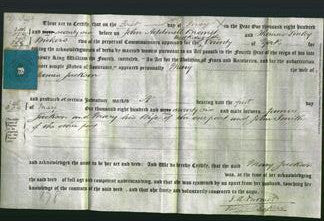 These are to Certify, that on the First day of May in the Year One thousand eight hundred
and seventy one before us John Aldwell and Thomas
two of the Perpetual Commissioners appointed for the County of York for
taking the acknowledgments of deeds by married women pursuant to an Act passed in the Fourth Year of the reign of his late
Majesty King William the Fourth, intituled, "An Act for the Abolition of Fines and Recoveries, and for the substitution of
more simple Modes of Assurance," appeared personally Mary the wife of
James Jackson
and produced a certain Indenture marked A bearing date the first day
of May One thousand eight hundred and seventy one and made between James
Jackson and Mary his Wife of the one part and John Smith
of the other part
and acknowledged the same to be her act and deed. And We do hereby Certify, that the said Mary Jackson
was, at the time of her acknowledging
the said deed, of full age and competent understanding, and that she was examined by us apart from her husband, touching her
knowledge of the contents of the said deed, and that she freely and voluntarily consented to the same.